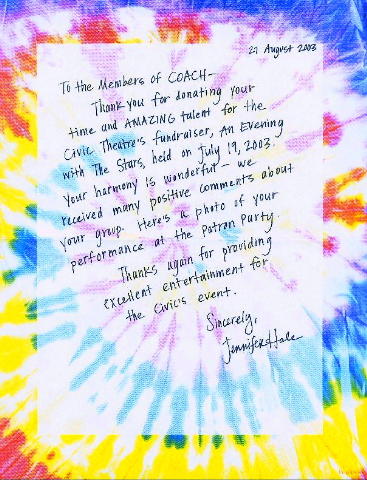 27 August 2003
To the Members of COACH-
Thank you for donating your
time and AMAZING talent for the
Civic Theatre's fundraiser, An Evening
with The Stars, held on July 19, 2003.
Your harmony is wonderful - we
received many positive comments about
your group. Here's a photo of your
performance at the Patron Party.
Thanks again for providing
excellent entertainment for
the Civic's event.
Sincerely,
Jennifer Hale